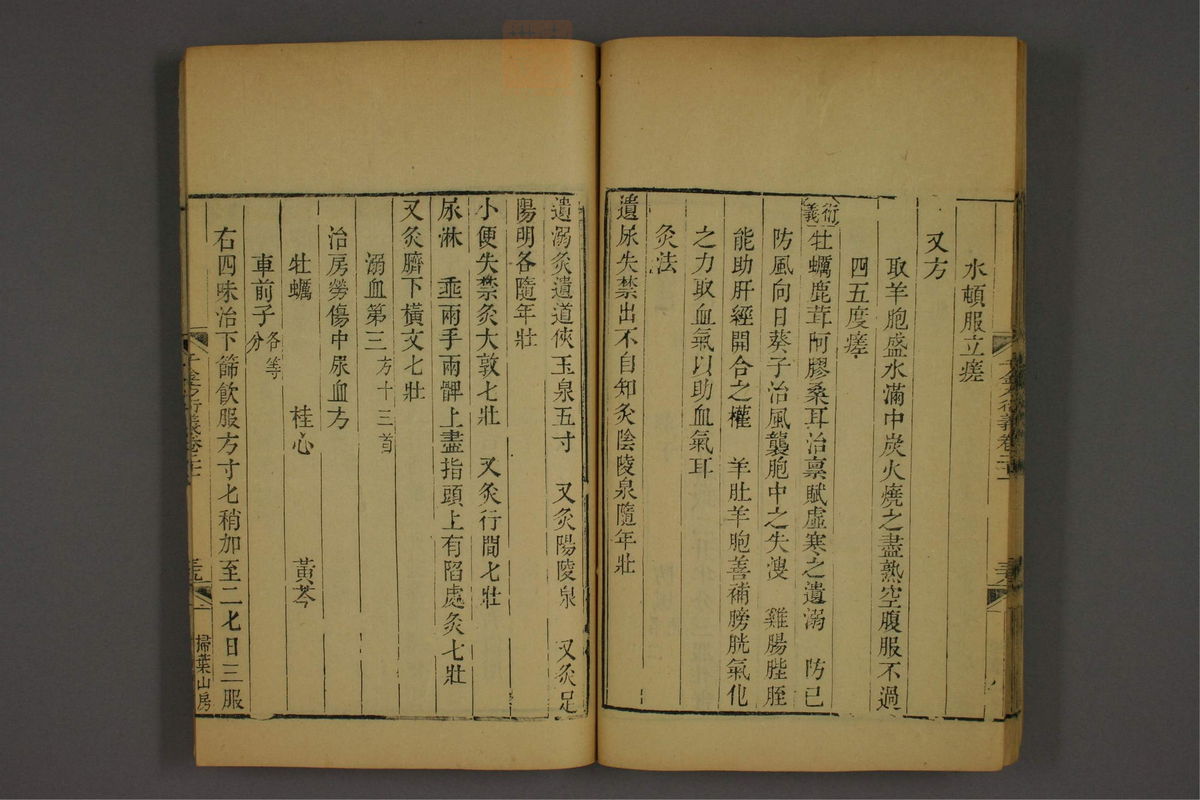 水頓服立瘥
又方
取羊胞盛水滿中炭火燒之盡熟空腹服不過
四五度瘥
衍義牡蠣鹿茸阿膠桑耳治禀賦虛寒之遺溺　防已
防風向日葵子治風襲胞中之失溲　雞腸䏶胵
能助肝經開合之權　羊肚羊胞善補膀胱氣化
之力取血氣以助血氣耳
灸法
遺尿失禁出不自知灸陰陵泉隨年壯
遺溺灸遺道俠玉泉五寸　又灸陽陵泉　又灸足
陽明各隨年壯
小便失禁灸大敦七壯　又灸行間七壯
尿淋　垂兩手兩髀上盡指頭上有陷處灸七壯
又灸臍下橫文七壯
溺血第三方十三首
治房勞傷中尿血方
牡蠣　桂心　黃芩
車前子各等分
右四味治下篩飲服方寸七稍加至二七日三服
掃葉山房